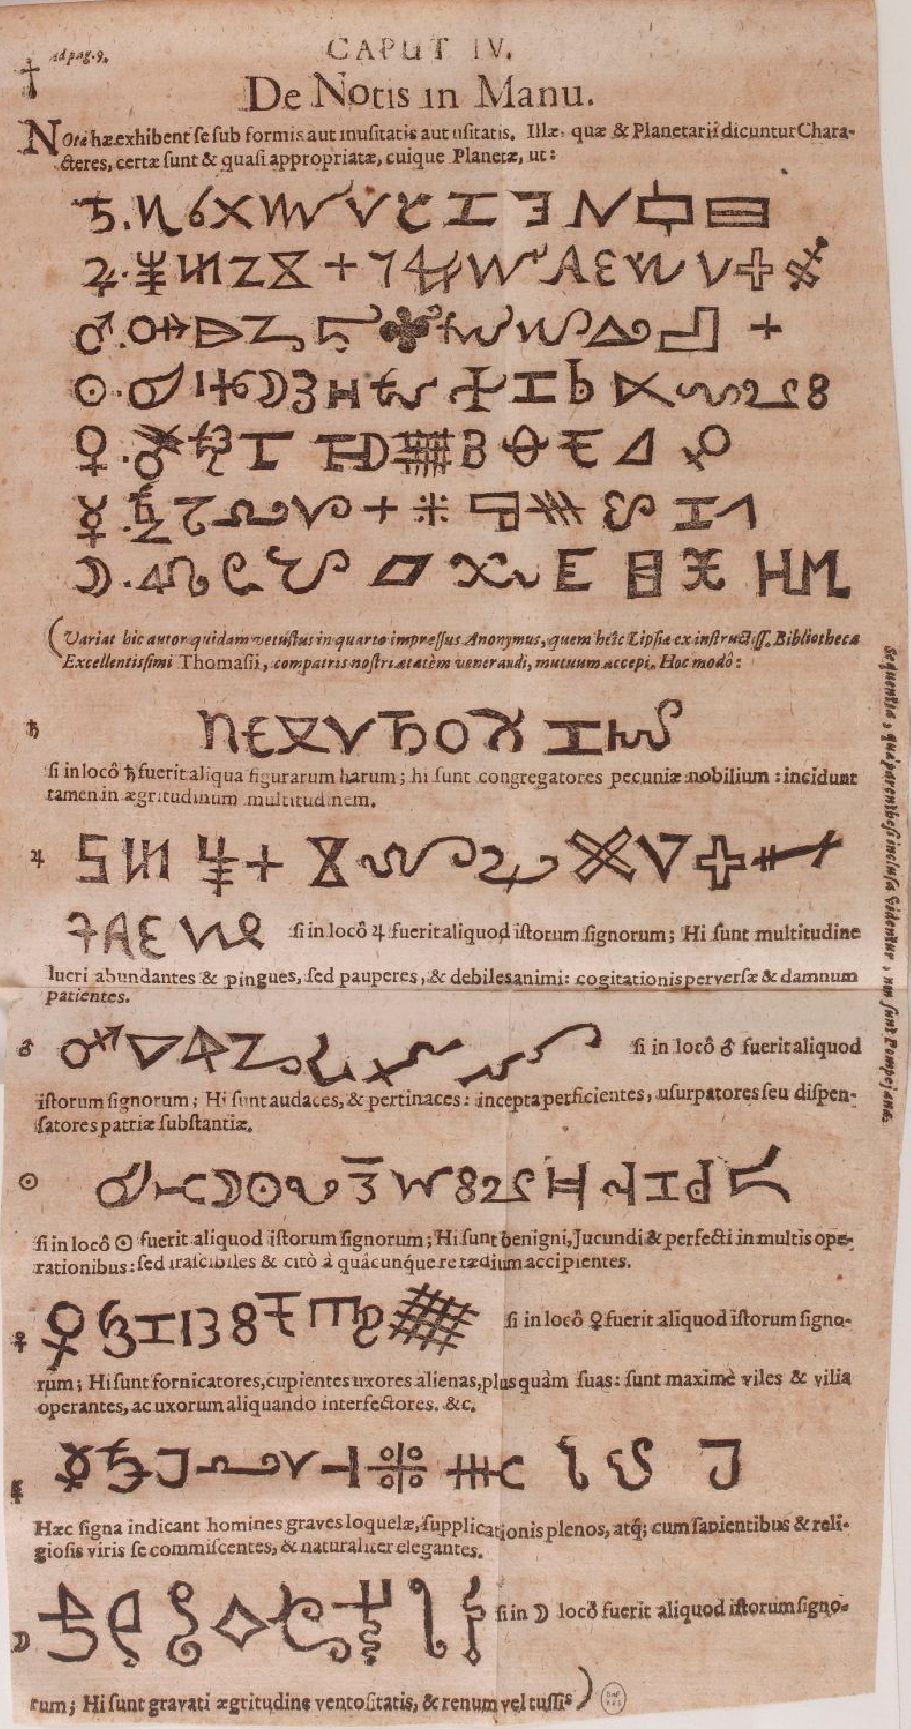 ad pag. 9.
CAPUT IV.
De Notis in Manu.
Notæ hæ exhibent se sub formis aut inusitatis aut usitatis. Illæ, quæ & Planetarii dicuntur Chara-
cteres, certæ sunt & quasi appropriatæ, cuique Planetæ, ut:
♄.
♃.
♂.
☉.
♀.
☿.
☽.
(Variat hic autor quidam vetustus in quarto impressus Anonymus, quem hîc Lipsiæ ex instructiss. Bibliotheca
Excellentissimi Thomasii, compatris nostri ætatèm venerandi, mutuum accepi. Hoc modô:
♄
si in locô ♄ fuerit aliqua figurarum harum; hi sunt congregatores pecuniæ nobilium: incidunt
tamen in ægritudinum multitudinem.
♃
si in locô ♃ fuerit aliquod istorum signorum; Hi sunt multitudine
lucri abundantes & pingues, sed pauperes, & debiles animi: cogitationis perversæ & damnum
patientes.
♂
si in locô ♂ fuerit aliquod
istorum signorum; Hi sunt audaces, & pertinaces: incepta perficientes, usurpatores seu dispen-
satores patriæ substantiæ.
☉
si in locô ☉ fuerit aliquod istorum signorum; Hi sunt benigni, Jucundi & perfecti in multis ope-
rationibus: sed irascibiles & citò à quâcunque re tædium accipientes.
♀
si in locô ♀ fuerit aliquod istorum signo-
rum; Hi sunt fornicatores, cupientes uxores alienas, plus quàm suas: sunt maximè viles & vilia
operantes, ac uxorum aliquando interfectores. &c.
☿
Hæc signa indicant homines graves loquelæ, supplicationis plenos, atq; cum sapientibus & reli-
giosis viris se commiscentes, & naturaliter elegantes.
☽
si in ☽ locô fuerit aliquod istorum signo-
rum; Hi sunt gravati ægritudine ventositatis, & renum vel tussis)
Sequentia, quæ parenthesi inclusa videntur, non sunt Pompejana.